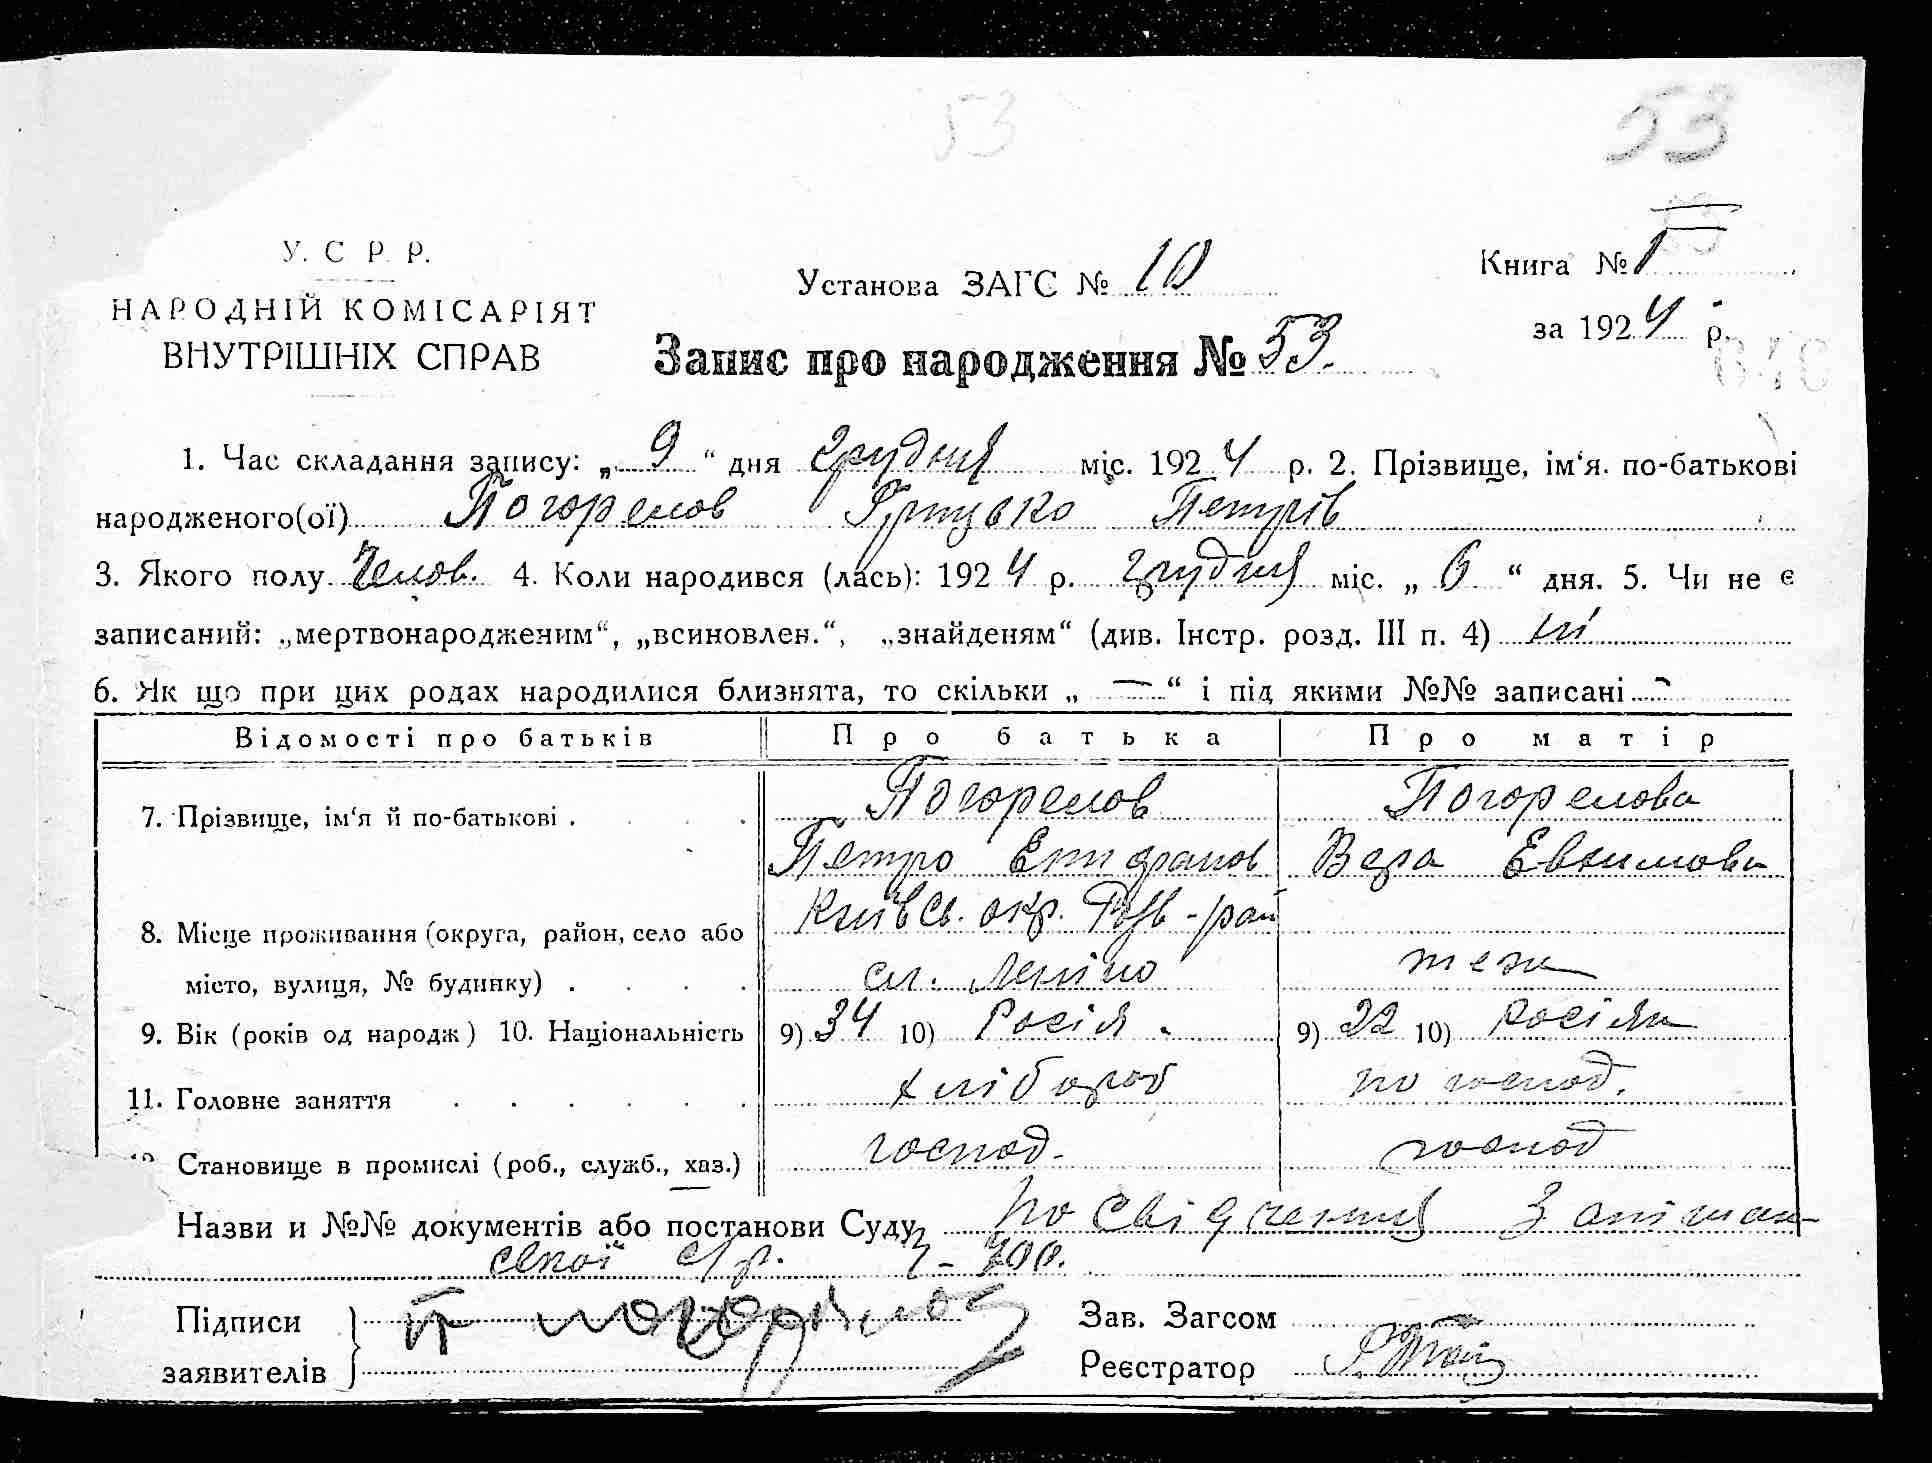 53 53
У. С Р. Р.
НАРОДНІЙ КОМІСАРІЯТ
ВНУТРІШНІХ СПРАВ
Установа ЗАГС № 10
Книга № 1
за 1924 р.
Запис про народження № 53.
1. Час складання запису: „ 9 “ дня Грудня міс. 1924 р. 2. Прізвище, ім‘я. по-батькові
народженого(ої) Погорелов Грицько Петрів
3. Якого полу Челов. 4. Коли народився (лась): 1924 р. Грудня міс. „ 6 “ дня. 5. Чи не є
записаний: „мертвонародженим“, „всиновлен.“, „знайденям“ (див. Інстр. розд. III п. 4) ні
6. Як що при цих родах народилися близнята, то скільки „ — “ і під якими №№ записані -
Відомості про батьків Про батька Про матір
7. Прізвище, ім‘я й по-батькові . . . . Погорелов Погорелова
Петро Епифанов Вера Евхимова
8. Місце проживання (округа, район, село або Київсь. окр. -рай
місто, вулиця, № будинку) . . . . сл. Леніно теж
9. Вік (років од народж) 10. Національність 9) 34 10) Росія. 9) 22 10) Росіян
11. Головне заняття . . . . . . хлібороб по господ.
Становище в промислі (роб., служб., хаз.) господ. господ
Назви и №№ документів або постанови Суду Посвідчення
ської с/р. 700.
Підписи П Погорелов Зав. Загсом
заявителів Реєстратор